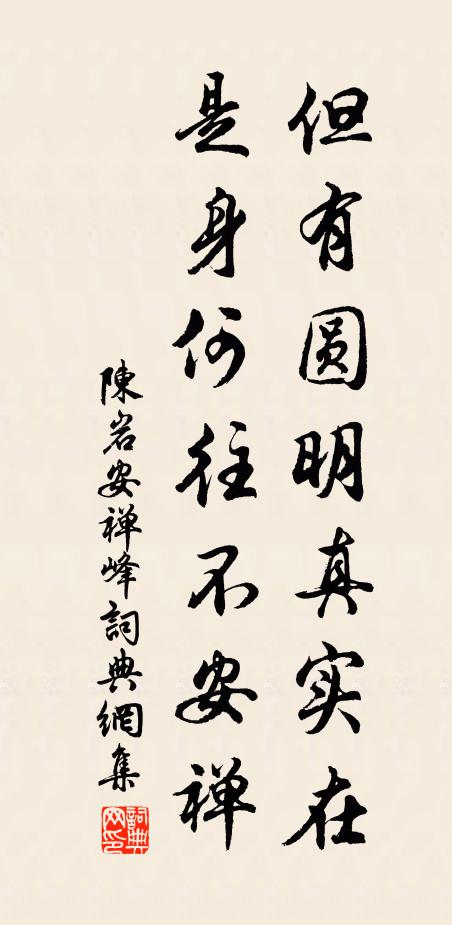 但有圆明真实在
是身何往不安禅
陳岩安禅峰詞典網集
詞典网印